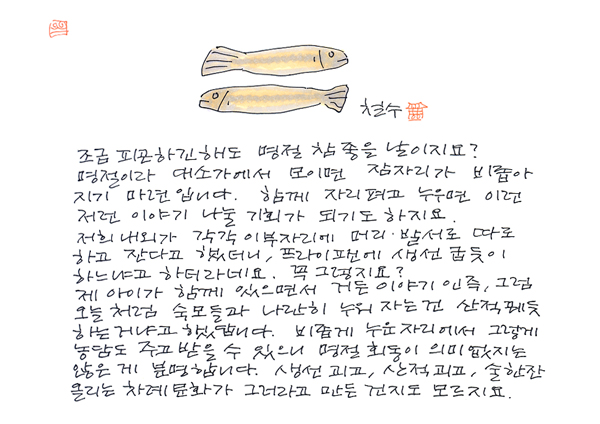 철수
조금 피곤하긴해도 명절 참 좋을 날이지요?
명절이라 대소가에서 모이면 잠자리가 비좁아
지기 마련입니다. 함께 자리펴고 누우면 이런
저런 이야기 나눌 기회가 되기도 하지요.
저희 내외가 각각 이부자리에 머리·발 서로 따로
하고 잔다고 했더니, 프라이팬에 생선 굽듯이
하느냐고 하더라네요. 꼭 그렇지요?
제 아이가 함께 있으면서 거든 이야기인즉, 그럼
오늘처럼 숙모들과 나란히 누워 자는 건 산적 꿰듯
하는거냐고 했답니다. 비좁게 누운 자리에서 그렇게
농담도 주고 받을 수 있으니 명절 회동이 의미없지는
않은 게 분명합니다. 생선 괴고, 산적 괴고, 술한잔
올리는 차례 문화가 그러라고 만든 건지도 모르지요.